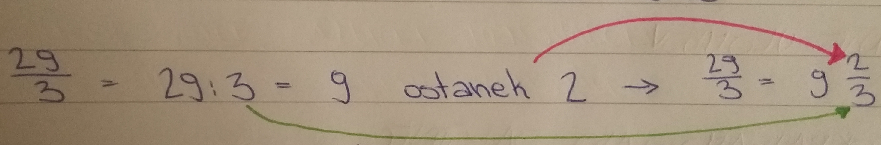 29/3 = 29:3 = 9 ostanek 2 → 29/3 = 9 2/3